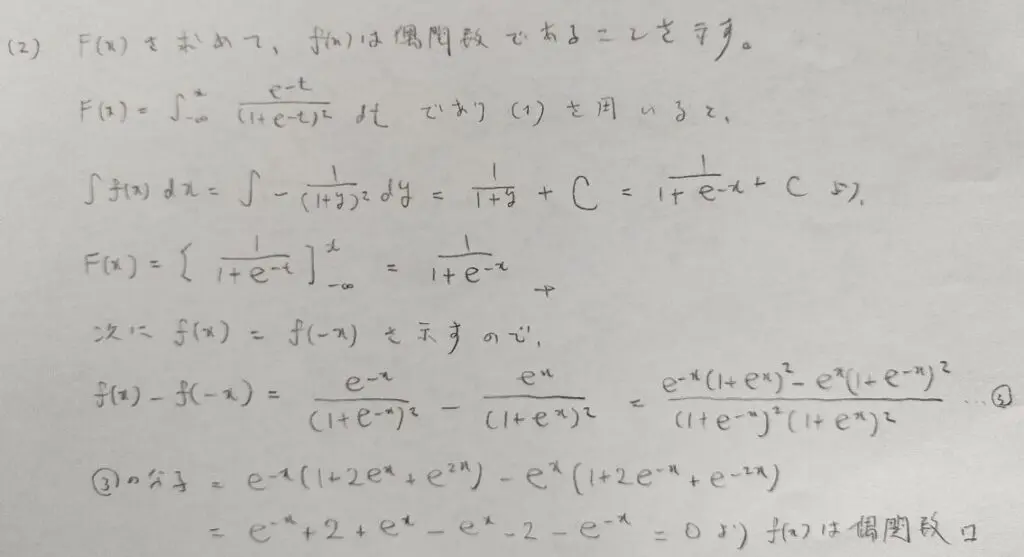 (2) F(x) を求めて、f(x)は偶関数であることを示す。
F(x) = ∫_{-∞}^{x} e^{-t}/(1+e^{-t})² dt であり (1) を用いると、
∫f(x)dx = ∫ - 1/(1+y)² dy = 1/(1+y) + C = 1/(1+e^{-x}) + C より、
F(x) = [ 1/(1+e^{-t}) ]_{-∞}^{x} = 1/(1+e^{-x}) →
次に f(x) = f(-x) を示すので、
f(x) - f(-x) = e^{-x}/(1+e^{-x})² - e^{x}/(1+e^{x})² = (e^{-x}(1+e^{x})² - e^{x}(1+e^{-x})²)/((1+e^{-x})²(1+e^{x})²) …③
③の分子 = e^{-x}(1+2e^{x}+e^{2x}) - e^{x}(1+2e^{-x}+e^{-2x})
= e^{-x}+2+e^{x}-e^{x}-2-e^{-x} = 0 より f(x)は偶関数 □